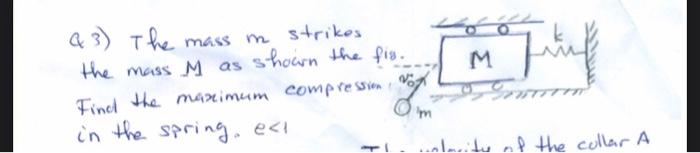 Q3) The mass m strikes
the mass M as shown the fig.
Find the maximum compression
in the spring. e<1
M
k
v₀
m
of the collar A